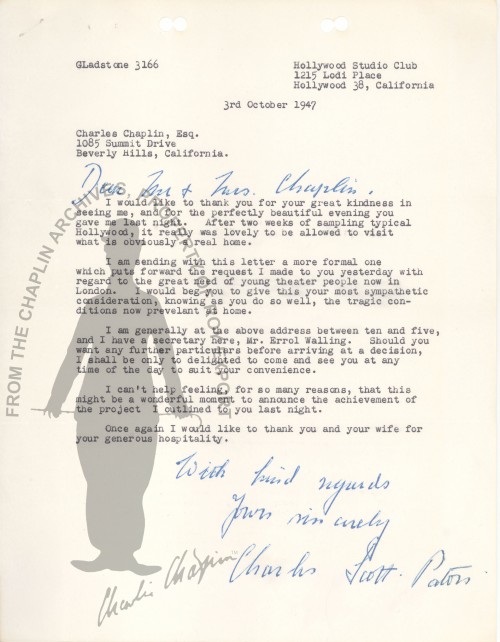 GLadstone 3166
Hollywood Studio Club
1215 Lodi Place
Hollywood 38, California
3rd October 1947
Charles Chaplin, Esq.
1085 Summit Drive
Beverly Hills, California.
Dear Mr & Mrs. Chaplin.
I would like to thank you for your great kindness in
seeing me, and for the perfectly beautiful evening you
gave me last night. After two weeks of sampling typical
Hollywood, it really was lovely to be allowed to visit
what is obviously a real home.
I am sending with this letter a more formal one
which puts forward the request I made to you yesterday with
regard to the great need of young theater people now in
London. I would beg you to give this your most sympathetic
consideration, knowing as you do so well, the tragic con-
ditions now prevelant at home.
I am generally at the above address between ten and five,
and I have a secretary here, Mr. Errol Walling. Should you
want any further particulars before arriving at a decision,
I shall be only to delighted to come and see you at any
time of the day to suit your convenience.
I can't help feeling, for so many reasons, that this
might be a wonderful moment to announce the achievement of
the project I outlined to you last night.
Once again I would like to thank you and your wife for
your generous hospitality.
With kind regards
Yours sincerely
Charles Scott-
FROM THE CHAPLIN ARCHIVES,
Charlie Chaplin